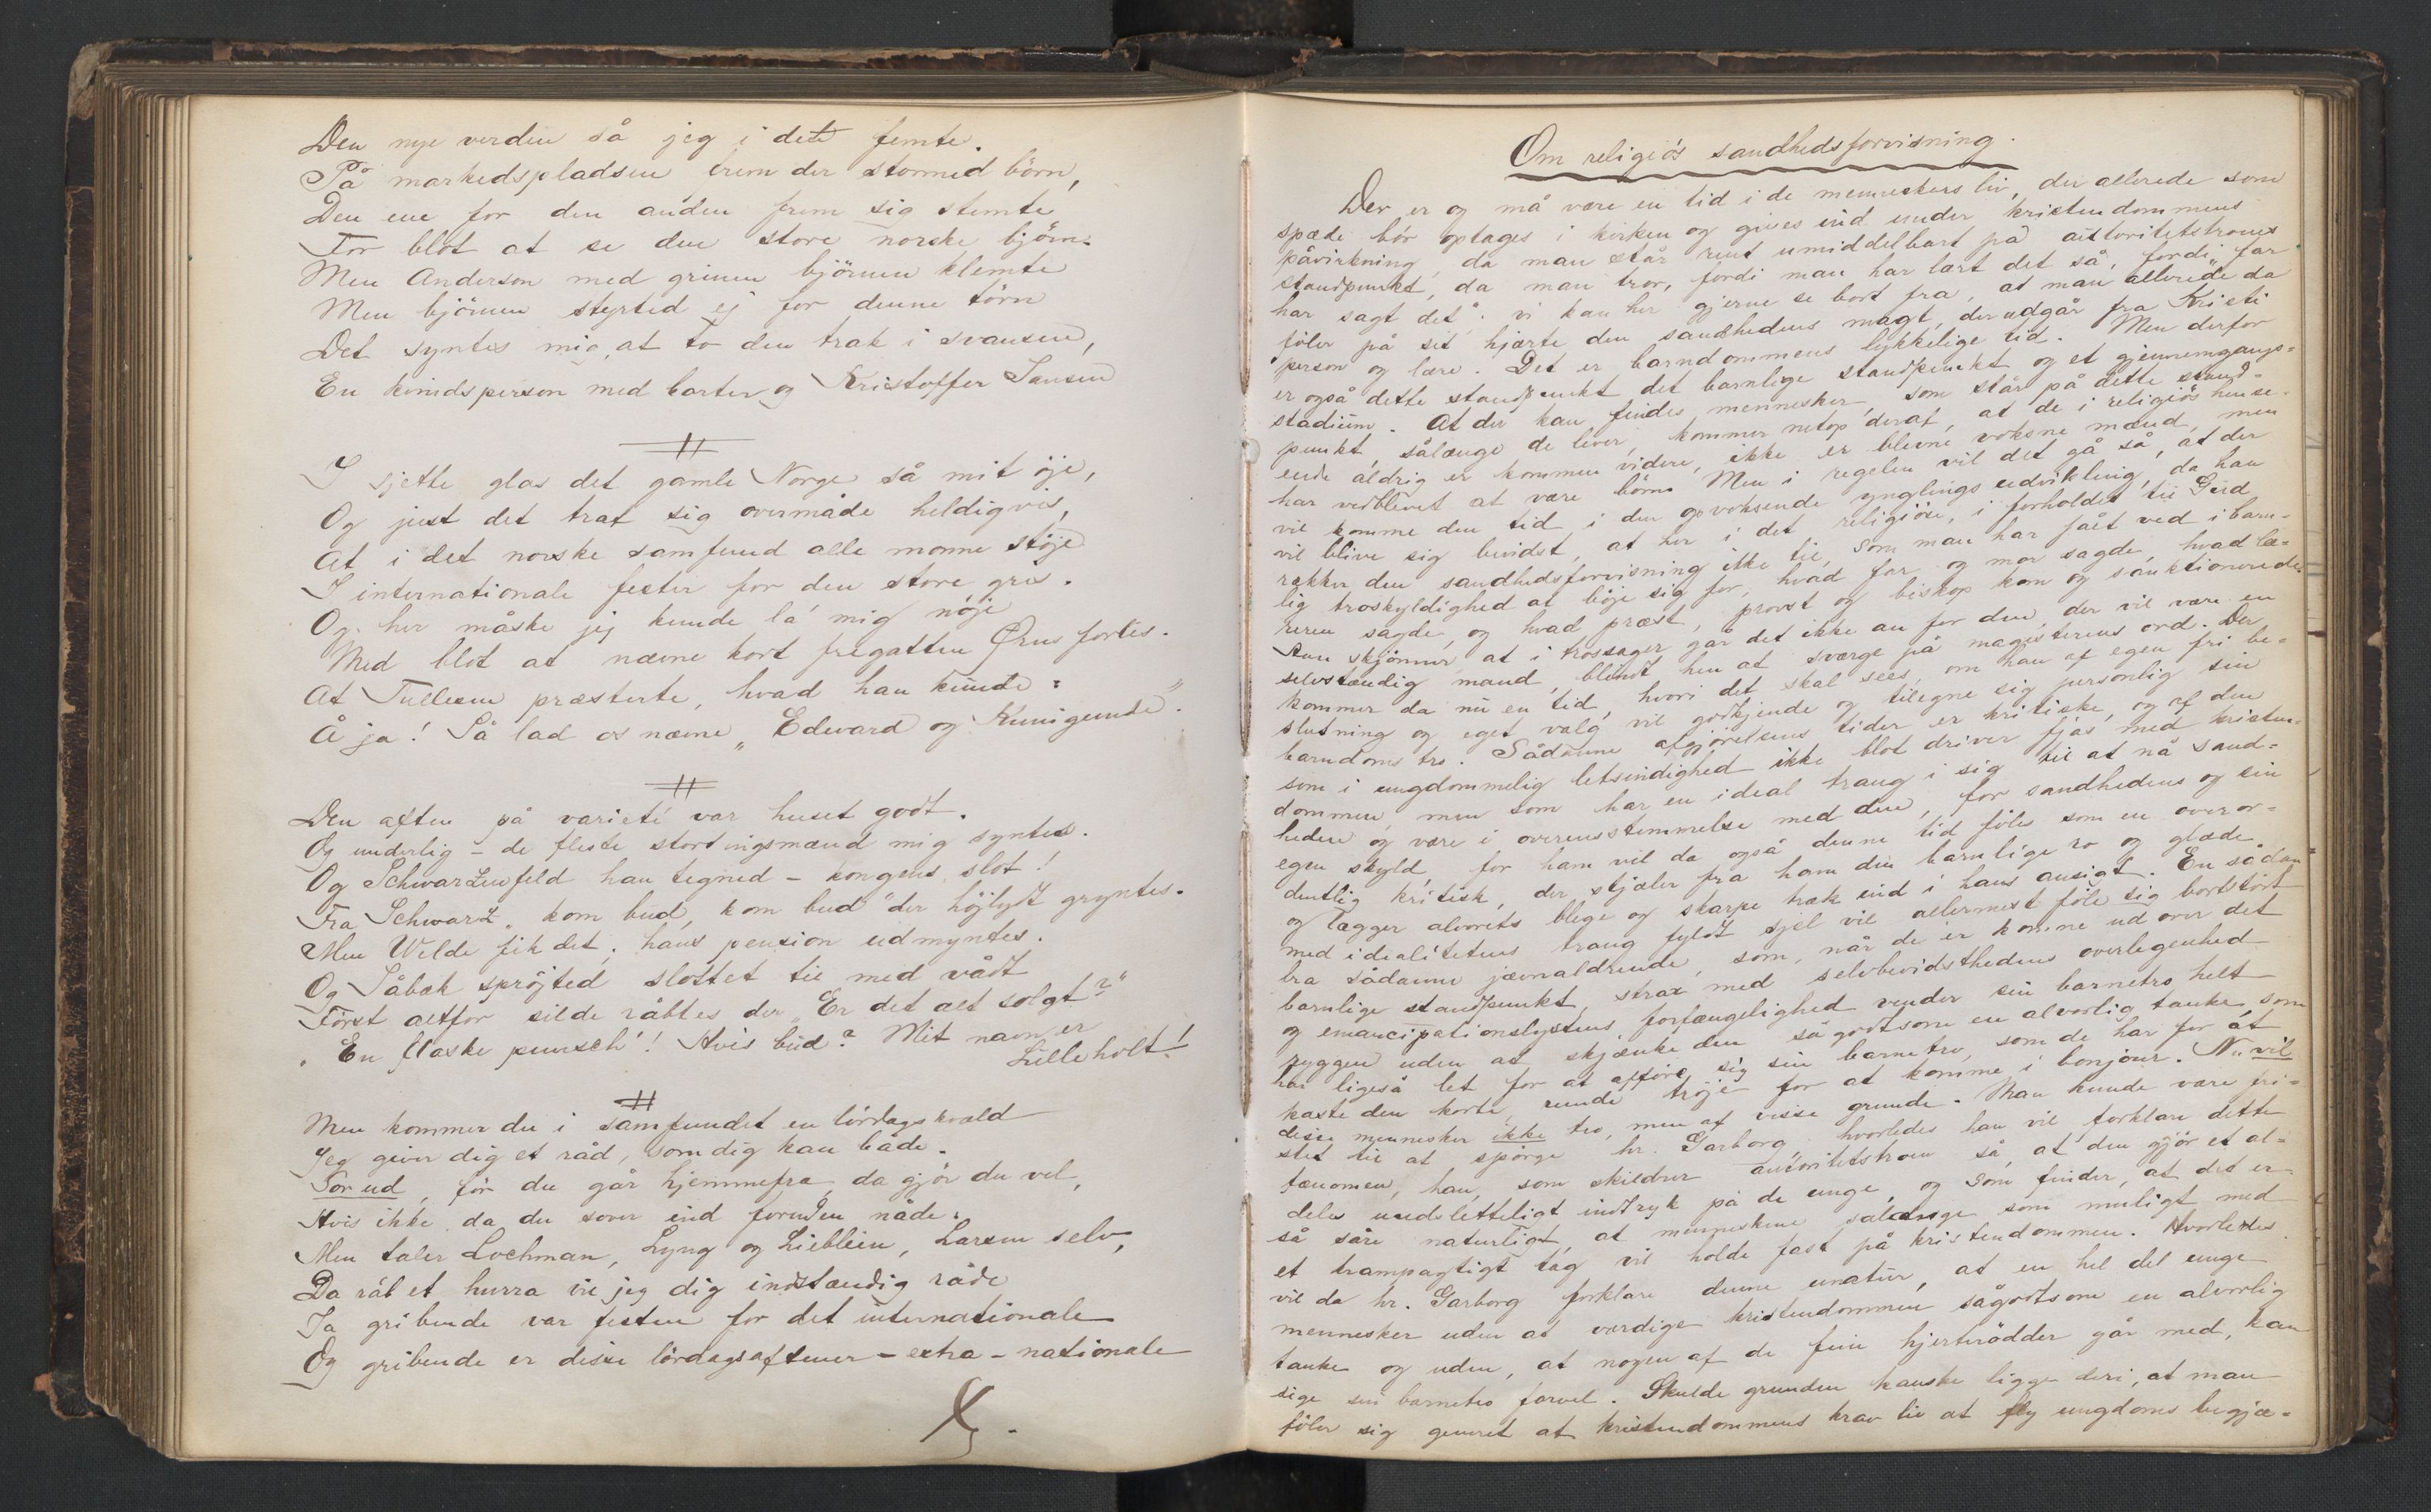 Den nye verden så jeg i det femte.
På markedspladsen frem der stormed börn,
Den ene for den anden frem sig stemte
For blot at se den store norske björn.
Men Anderson med grinen björnen klemte
Men björnen styrted ej for denne törn
Det syntes mig, at to den trak i svansen,
En kvindsperson med barter og Kristoffer Jansen
I sjette glas det gamle Norge så mit öje,
Og just det traf sig overmåde heldigvis,
At i det norske samfund alle monne støje
I internationale fester for den store gris.
Og her måske jeg kunde la' mig nöje
Med blot at nævne kort fregatten Ørns forlis.
At Tullesen præsterte, hvad han kunde:
Å ja! Så lad os nævne "Edevard og Kunigunde".
Den aften på varieté var huset godt.
Og underlig – de fleste stortingsmænd mig syntes.
Og Schwarzenfeld han tegned – kongens slot!
Fra Schwarz "kom bud, kom bud" der höjlydt gryntes.
Men Welde fik det, hans pension udmyntes.
Og Såbæk spröjted slottet til med vådt
Först altfor silde råbtes der "Er det alt solgt?"
"En flaske punsch"! Hvis bud? Mit navn er
Lilleholt!
Men kommer du i samfundet en lördagskvæld
Jeg giver dig et råd, som dig kan både.
Sov ud, för du går hjemmefra, da gjör du vel,
Hvis ikke da du sover ind foruden nåde.
Men taler Lochman, Lyng og Lieblein, Larsen selv,
Da råb et hurra vil jeg dig indstændig råde
Ja gribende var festen for det internationale
Og gribende er disse lördagsaftener – extra-nationale
Om religiös sandhedsforvisning.
Der er og må være en tid i de menneskers liv, der allerede som
spæde bör optages i kirken og gives ind under kristendommens
påvirkning, da man står rent umiddelbart på autoritetstroens
standpunkt, da man tror, fordi man har lært det så, fordi "far
har sagt det". vi kan her gjerne se bort fra, at man allerede da
föler på sit hjærte den sandhedens magt, der udgår fra Kristi
person og lære. Det er barndommens lykkelige tid. Men derfor
er også dette standpunkt det barnlige standpunkt og et gjennemgangs-
stadium. At der kan findes mennesker, som står på dette stand-
punkt, sålænge de lever, kommer netop deraf, at de i religiös hense-
ende aldrig er kommen videre, ikke er blevne voksne mænd, men
har vedblevet at være börn. Men i regelen vil det gå så, at der
vil komme den tid i den opvoksende ynglings udvikling, da han
vil blive sig bevidst, at her i det religiöse, i forholdet til Gud
rækker den sandhedsforvisning ikke til, som man har fået ved i barn-
lig troskyldighed at böje sig for, hvad far og mor sagde, hvad læ-
reren sagde, og hvad præst, provst og biskop kom og sanktionerede.
Han skjönner, at i trossager går det ikke an for den, der vil være en
selvstændig mand, blindt hen at sværge på magisterens ord. Der
kommer da nu en tid, hvori det skal sees, om han af egen fri be-
slutning og eget valg vil godkjende og tilegne sig personlig sin
barndoms tro. Sådanne afgjörelsens tider er kritiske, og af den
som i ungdommelig letsindighed ikke blot driver fjas med kristen-
dommen, men som har en ideal trang i sig til at nå sand-
heden og være i overensstemmelse med den, for sandhedens og sin
egen skyld, for ham vil da også denne tid föles som en overor-
dentlig kritisk, der stjæler fra ham den barnlige ro og glæde
og lægger alvorets blege og skarpe træk ind i hans ansigt. En sådan
med idealitetens trang fyldt sjel vil allermest föle sig bortstödt
fra sådanne jævnaldrende, som, når de er komne ud over det
barnlige standpunkt, strax med selvbevidsthedens overlegenhed
og emancipationslystens forfængelighed vender sin barnetro helt
ryggen uden at skjænke den sågodtsom en alvorlig tanke, som
har ligeså let for at afføre sig sin barnetro, som de har for at
kaste den korte, runde tröje for at komme i bonjour. Nu vil
disse mennesker ikke tro, men af visse grunde. Man kunde være fri-
stet til at spörge hr. Garborg, hvorledes han vil forklare dette
fænomen, han, som skildrer autoritetstroen så, at den gjör et al-
deles uudsletteligt indtryk på de unge, og som finder, at det er
så såre naturligt, at menneskene sålænge som muligt med
et krampagtigt tag vil holde fast på kristendommen. Hvorledes
vil da hr. Garborg forklare denne unatur, at en hel del unge
mennesker uden at værdige kristendommen sågodtsom en alvorlig
tanke og uden, at nogen af de fine hjerterödder går med, kan
sige sin barnetro farvel. Skulde grunden kanske ligge deri, at man
föler sig generet af kristendommens krav til at fly ungdoms begjæ-